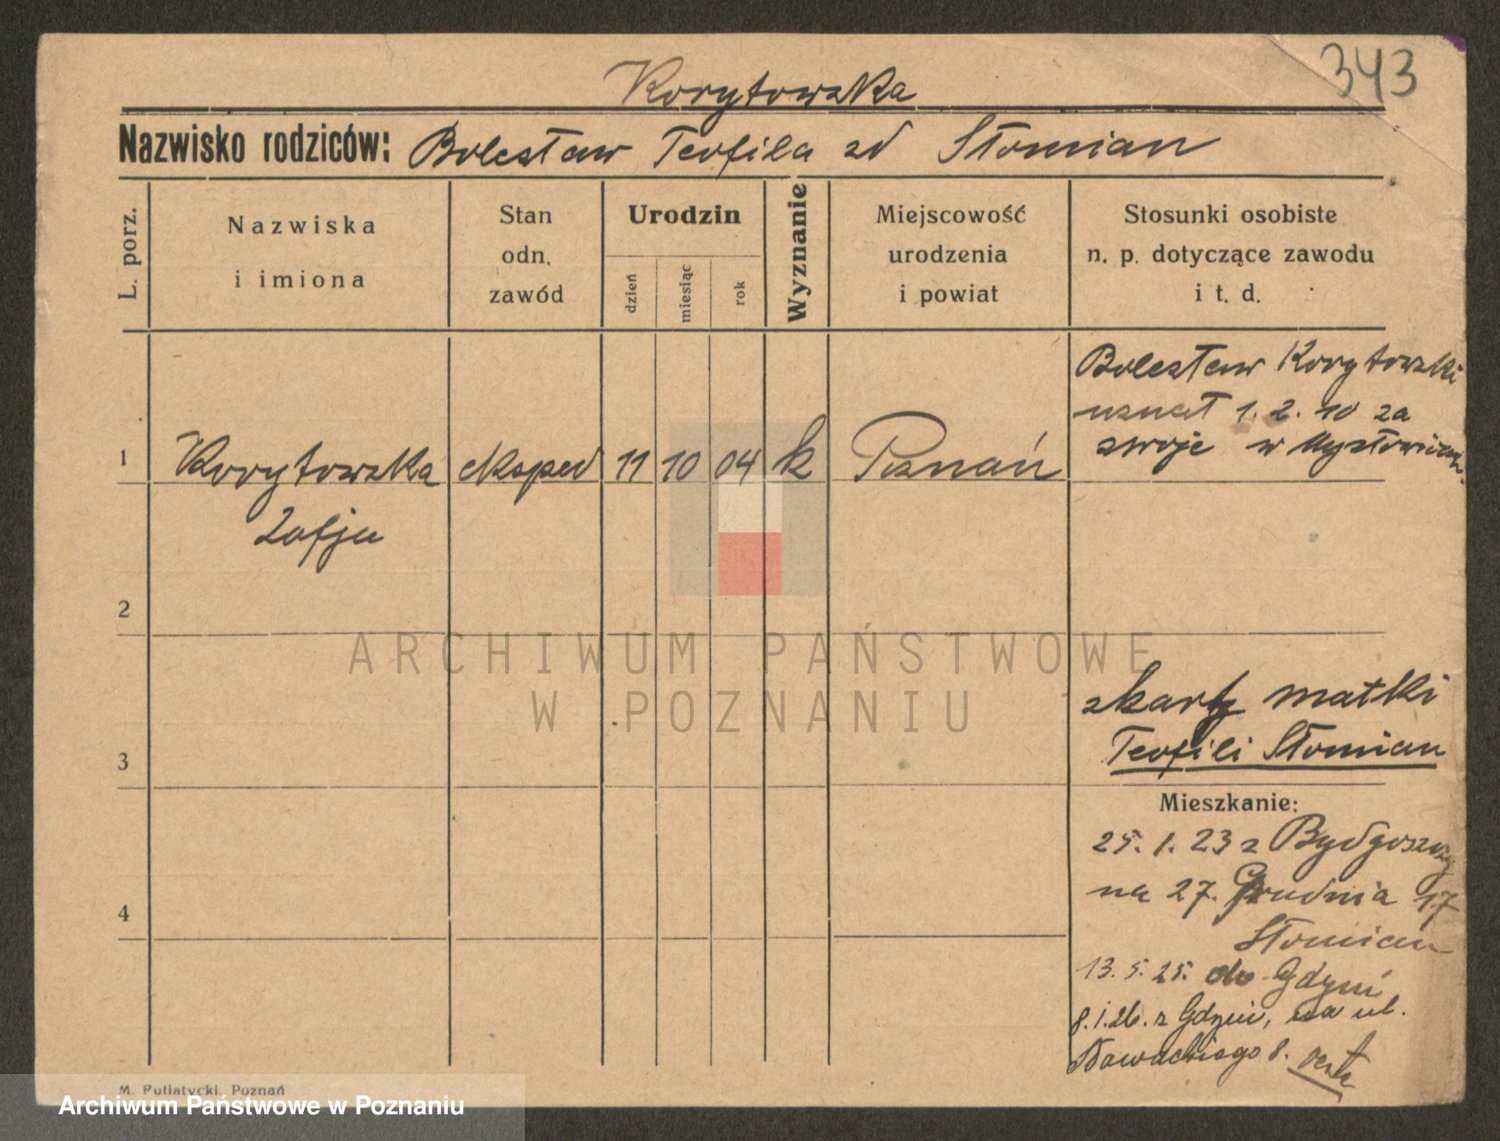 343
Korytowska
Nazwisko rodziców: Bolesław Teofila zd Słomian
L. porz.
Nazwiska
i imiona
Stan
odn.
zawód
Urodzin
dzień
miesiąc
rok
Wyznanie
Miejscowość
urodzenia
i powiat
Stosunki osobiste
n. p. dotyczące zawodu
i t. d.
Bolesław Korytowski
uznał 1.2.10 za
swoje w Mysłowicach
1 Korytowska eksped 11 10 04 k Poznań
Zofja
2
z karty matki
3 Teofili Słomian
Mieszkanie:
25.1.23 z Bydgoszczy
na 27. Grudnia 17
4
Słomian
13.5.25. do Gdyni
8.1.26. z Gdyni, na ul.
8.
M. Puliatycki, Poznań
ARCHIWUM PAŃSTWOWE
W POZNANIU
Archiwum Państwowe w Poznaniu